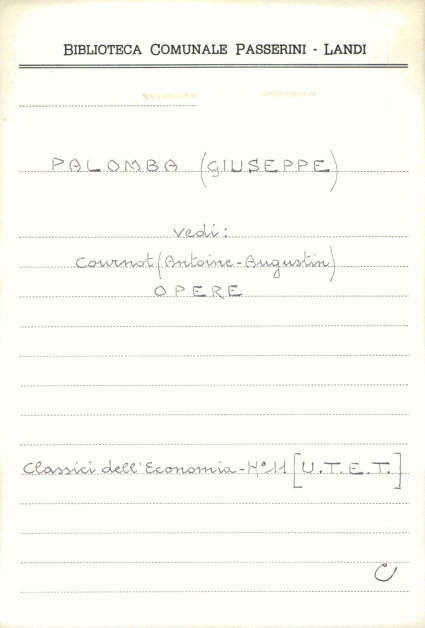 BIBLIOTECA COMUNALE PASSERINI - LANDI
PALOMBA (GIUSEPPE)
vedi:
Cournot (Antoine-Augustin)
OPERE
Classici dell'Economia - N° 11 [U.T.E.T.]
C